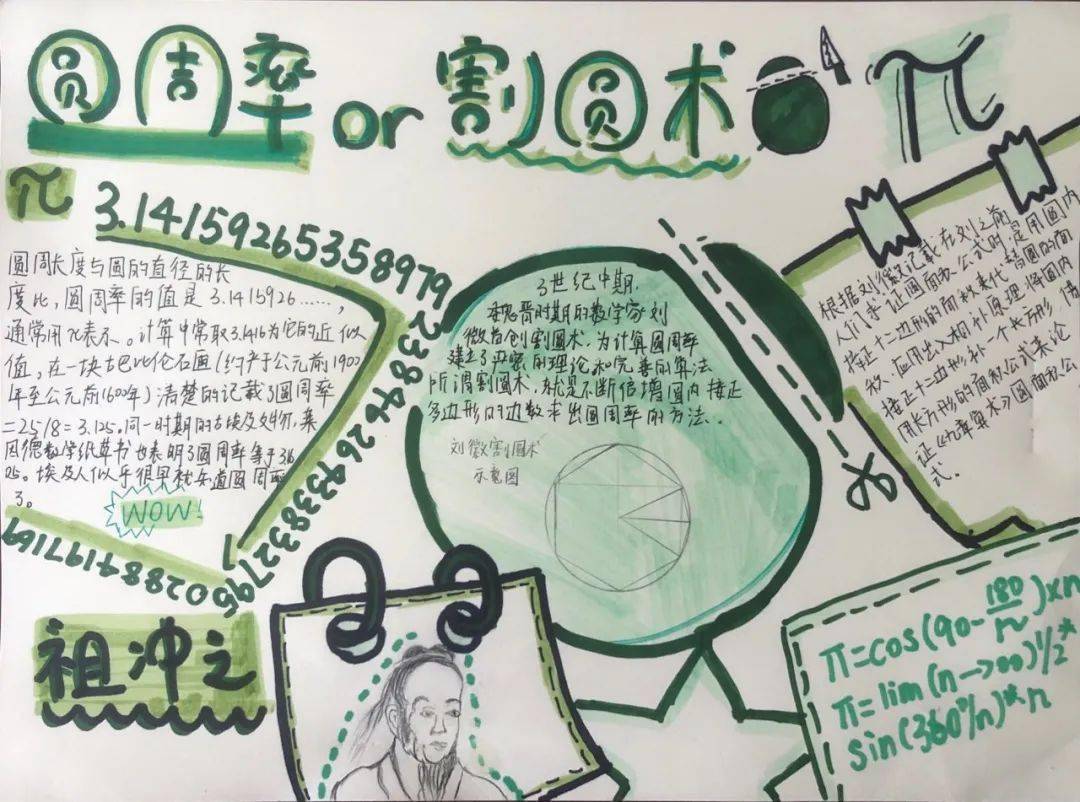 圆周率or割圆术
π
π
3.14159265358979
23846269933832795
02884197169
圆周长度与圆的直径的长
度比,圆周率的值是3.1415926……,
通常用π表示。计算中常取3.1416为它的近似
值,在一块古巴比伦石匾(约产于公元前1900
年至公元前1600年)清楚的记载了圆周率
=25/8=3.125。同一时期的古埃及文物,莱
因德数学纸草书也表明了圆周率等于
埃及人似乎很早就知道圆周率
了。
WOW!
3世纪中期,
魏晋时期的数学家刘
徽首创割圆术,为计算圆周率
建立了严密的理论和完善的算法
所谓割圆术,就是不断倍增圆内接正
多边形的边数求出圆周率的方法..
刘徽割圆术
示意图
根据刘徽的记载在刘之前
人们求证圆面积公式时,是用圆内
接正十二边形的面积来代替圆的面
积。应用出入相补原理,将圆内
接正十二边形补一个长形,借
用长方形的面积公式来论
证《九章算术》圆面积公
式。
祖冲之
π=cos(90-180/n)×n
π=lim(n→∞)1/2*
sin(360°/n)*n